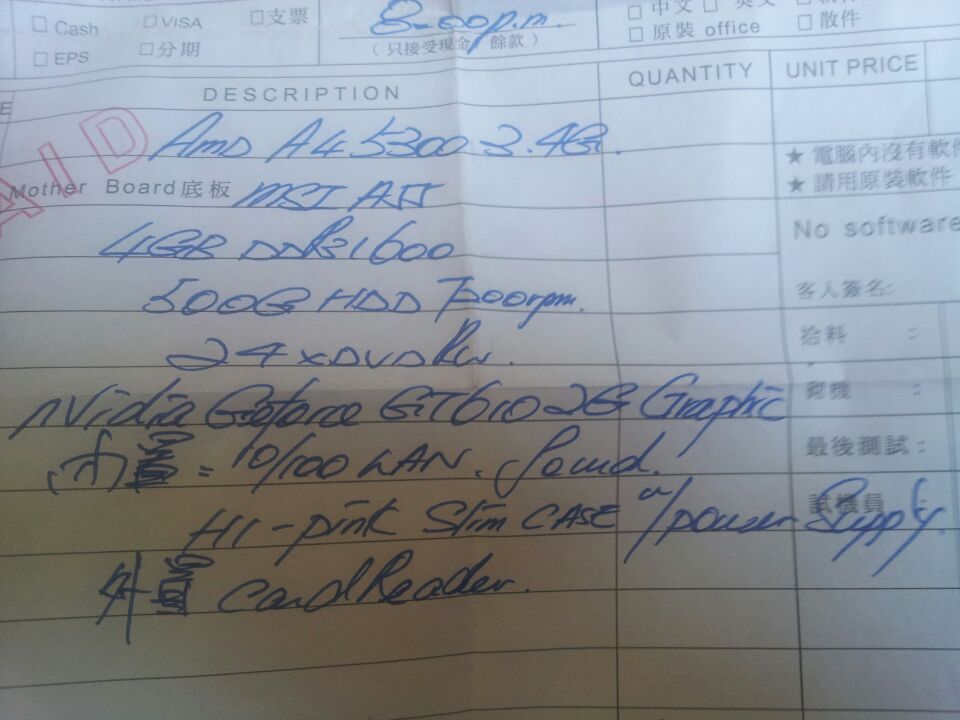 □ Cash □ VISA □ 支票
□ EPS □ 分期
8-00p.m.
( 只接受現金 餘款 )
□ 中文 □ 英文
□ 原裝 office □ 散件
DESCRIPTION QUANTITY UNIT PRICE
AID
AMD A4 5300 3.4G.
Mother Board底板 MSI
4GB DDR3 1600
500G HDD 7200rpm.
24 x DVD RW.
nVidia Geforce GT610 2G Graphic
內置 = 10/100 LAN. Sound.
Hi-pink Slim CASE w/power Supply.
外置 Card Reader.
★ 電腦內沒有軟件
★ 請用原裝軟件
No software
客人簽名:
給料 :
砌機 :
最後測試 :
試機員 :